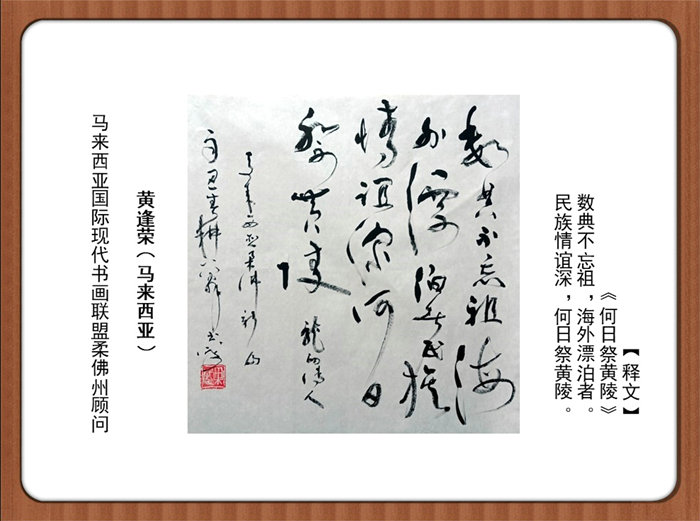 【释文】
《何日祭黄陵》
数典不忘祖，海外漂泊者。
民族情谊深，何日祭黄陵。
数典不忘祖海
外漂泊者民族
情谊深何日
祭黄陵 龙的传人
马来西亚柔佛新山
黄逢荣(马来西亚)
马来西亚国际现代书画联盟柔佛州顾问